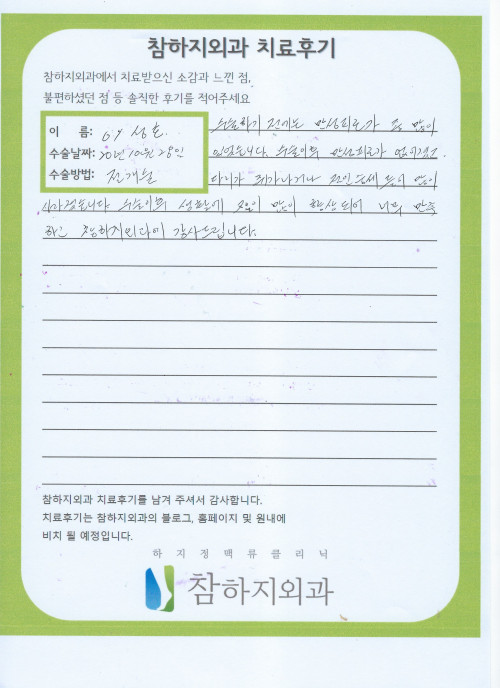 참하지외과 치료후기
참하지외과에서 치료받으신 소감과 느낀 점,
불편하셨던 점 등 솔직한 후기를 적어주세요
이 름: 이성호
수술날짜: 20년 10월 28일
수술방법: 전개술
수술하기 전에는 만성피로가 좀 많이
있었습니다 수술이후 만성피로가 없어졌고
다리가 저리거나 쪼인증세 등이 많이
사라졌습니다 수술이후 생활에 있어 많이 향상되어 너무 만족
하고 참하지외과에 감사드립니다.
참하지외과 치료후기를 남겨 주셔서 감사합니다.
치료후기는 참하지외과의 블로그, 홈페이지 및 원내에
비치 될 예정입니다.
하지정맥류클리닉
참하지외과